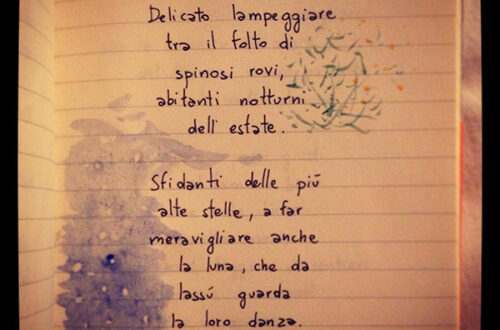 Delicato lampeggiare
tra il folto di
spinosi rovi,
abitanti notturni
dell'estate.
Sfidanti delle più
alte stelle, a far
meravigliare anche
la luna, che da
lassù guarda
la loro danza.